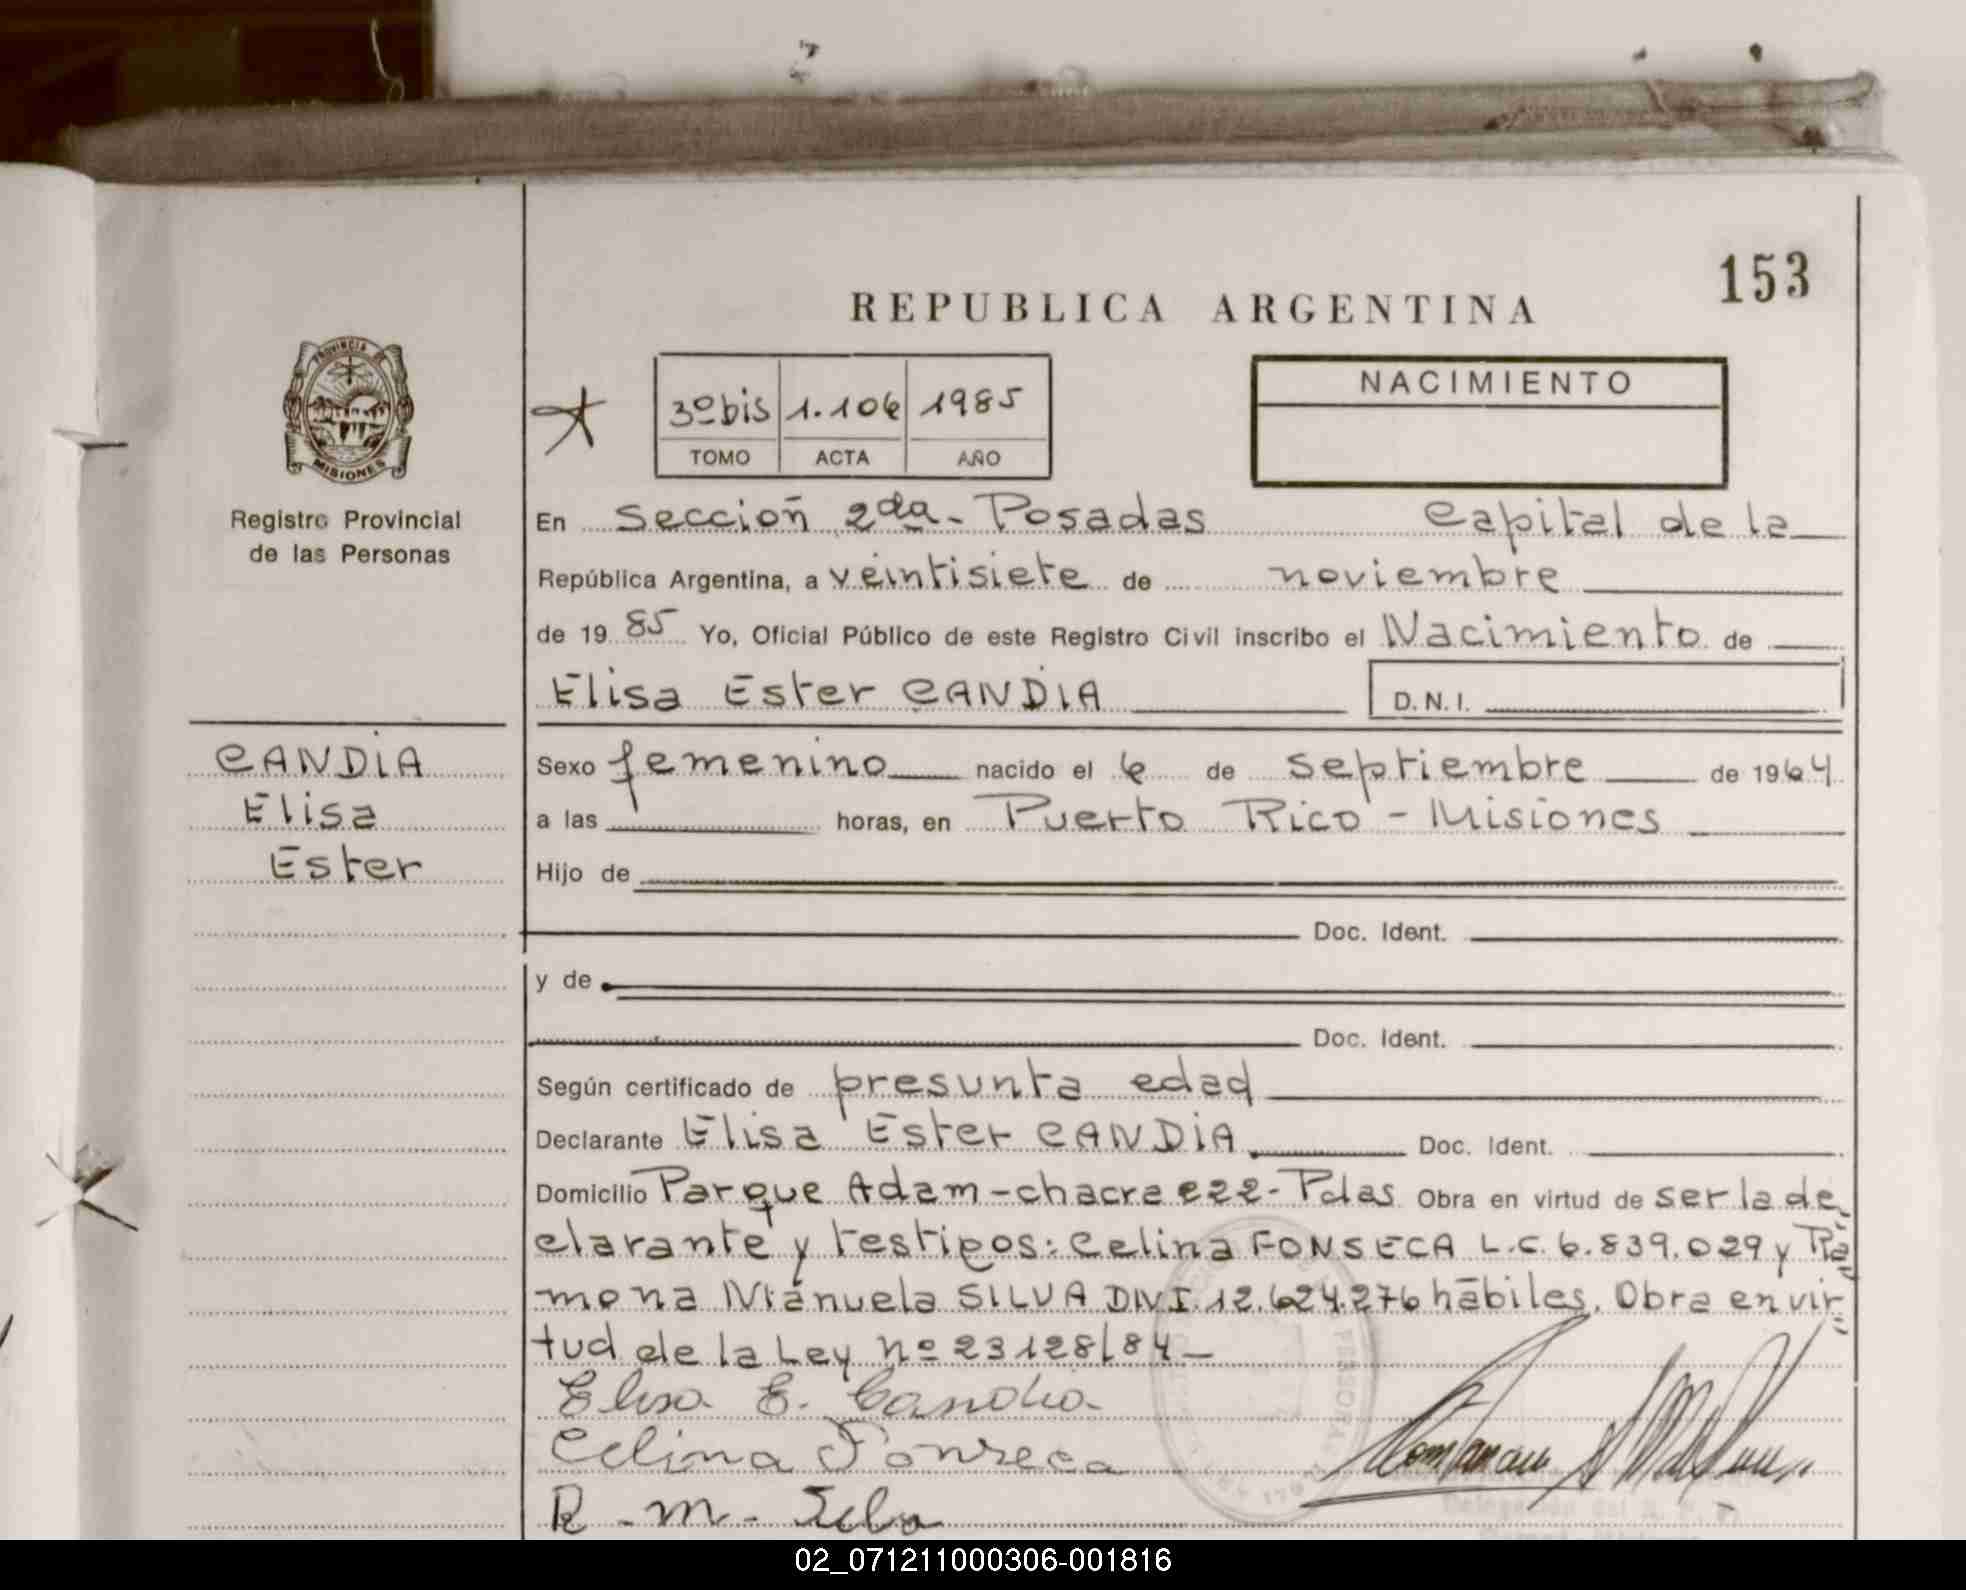 153
REPUBLICA ARGENTINA
PROVINCIA DE
MISIONES
Registro Provincial
de las Personas
3º bis 1.106 1985
TOMO ACTA AÑO
NACIMIENTO
En Sección 2da - Posadas Capital de la
República Argentina, a veintisiete de noviembre
de 19 85 Yo, Oficial Público de este Registro Civil inscribo el Nacimiento de
Elisa Ester CANDIA D.N.I.
CANDIA
Elisa
Ester
Sexo femenino nacido el 6 de septiembre de 1964
a las horas, en Puerto Rico - Misiones
Hijo de
Doc. Ident.
y de
Doc. Ident.
Según certificado de presunta edad
Declarante Elisa Ester CANDIA Doc. Ident.
Domicilio Parque Adam - chacra 222 - Pdas Obra en virtud de ser la de
clarante y testigos: Celina FONSECA L.C. 6.839.029 y Ra
mona Manuela SILVA DNI. 12.624.276 hábiles. Obra en vir
tud de la Ley nº 23128/84 -
Elisa E. Candia
Celina Fonseca
R. M. Silva
02_071211000306-001816